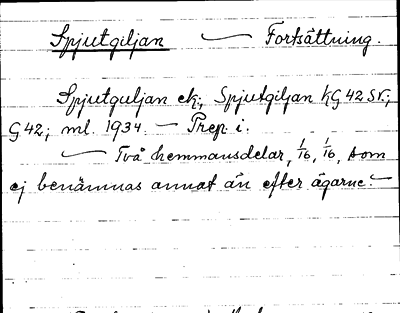 Spjutgiljan — Fortsättning.
Spjutguljan ek; Spjutgiljan KG 42 Sr.;
G 42; ml. 1934. — Prep. i.
— Två hemmansdelar, 1/16, 1/16, som
ej benämnas annat än efter ägarne. —